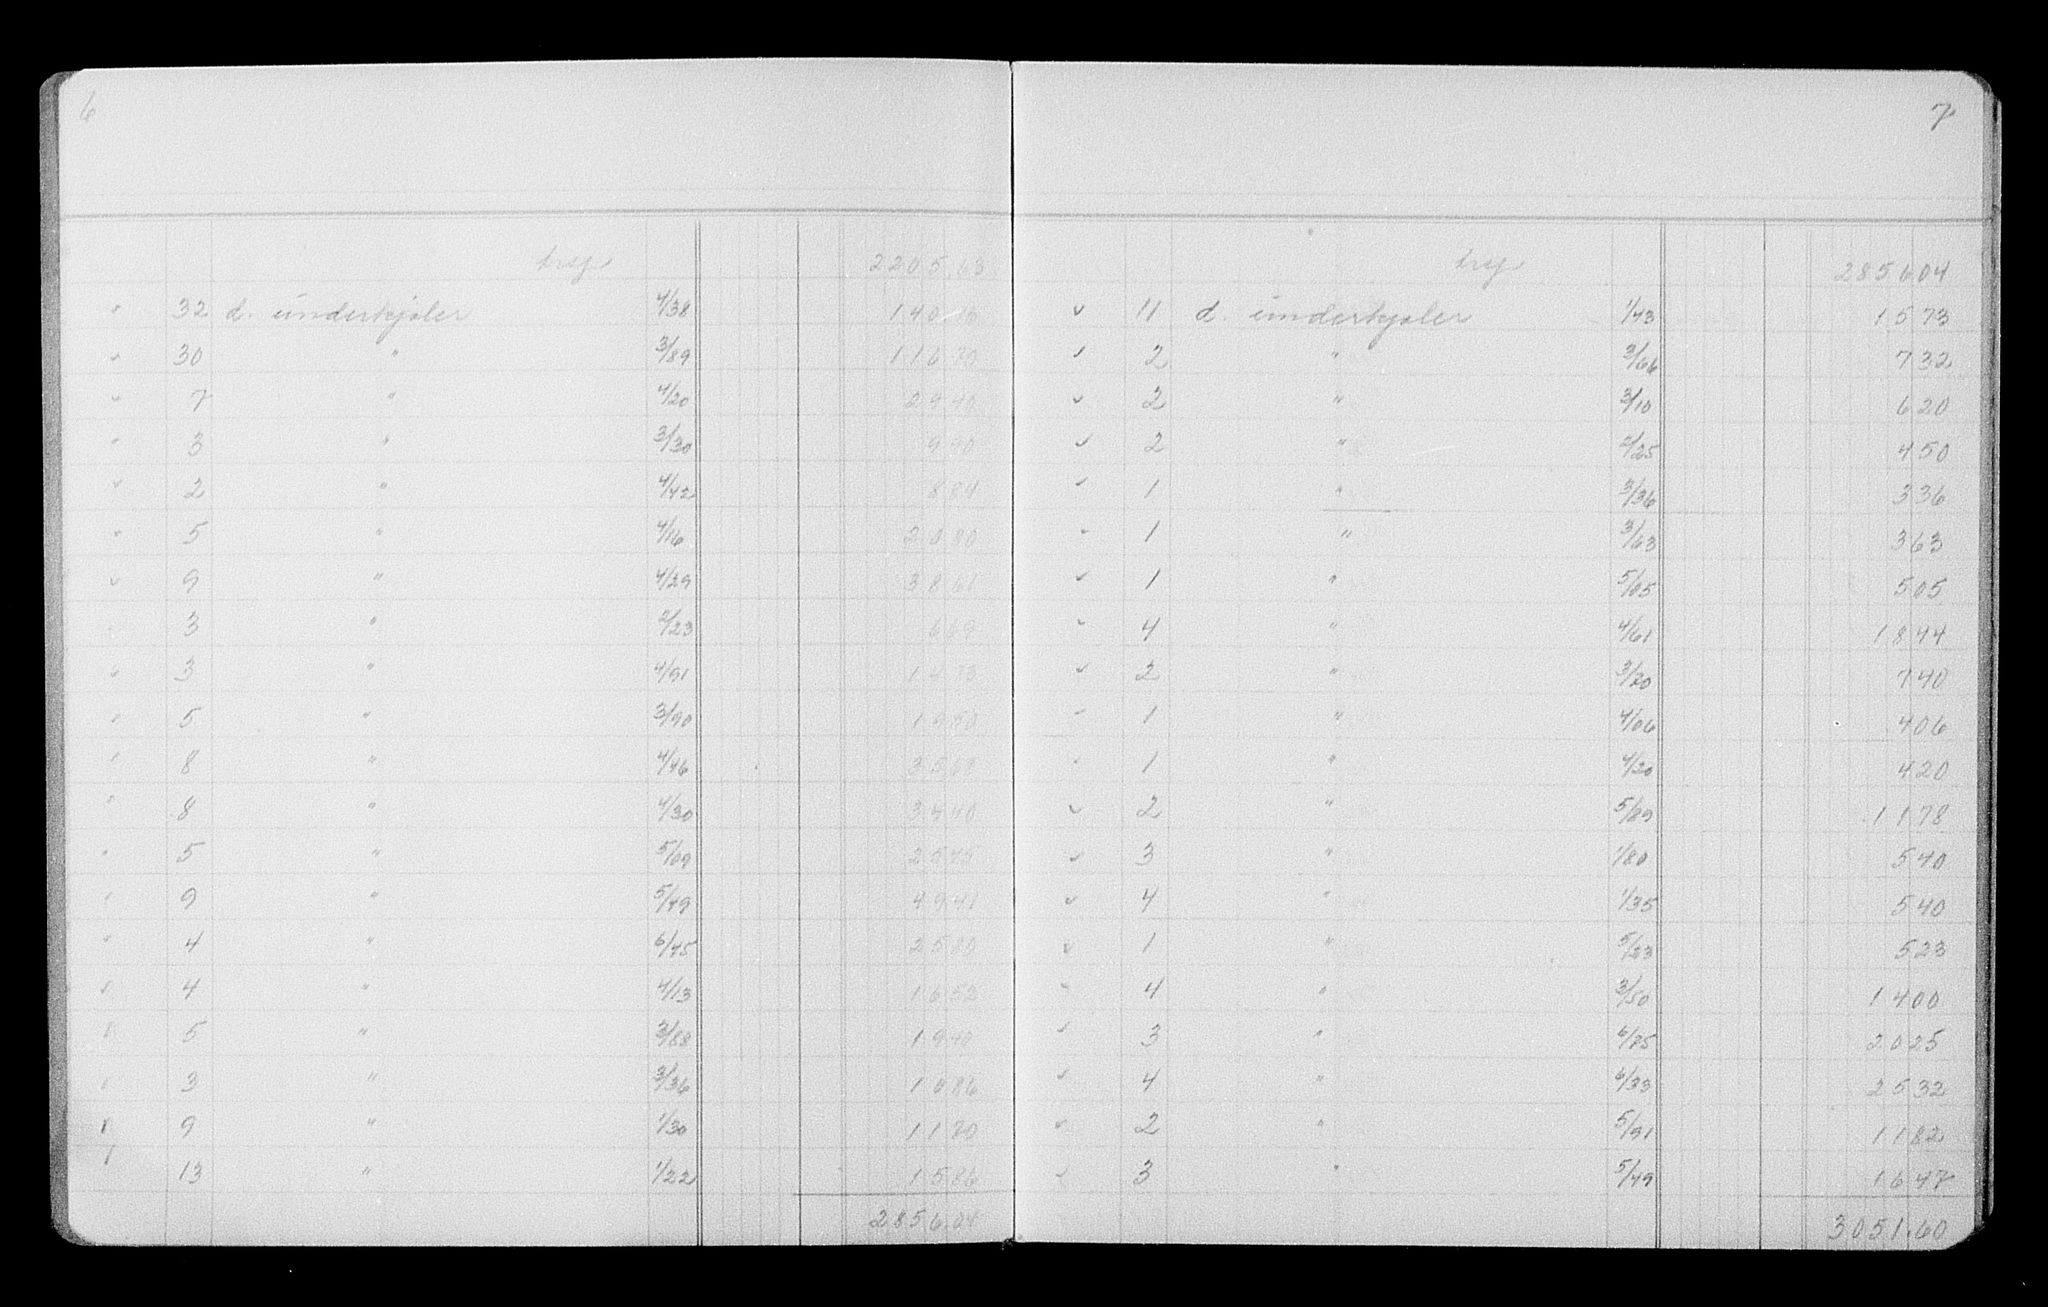 6
trsf 2205.63
32 d. underkjoler 4/38 140
30 " 3/89 11670
7 " 4/20 2940
3 " 3/30 990
2 " 4/42 884
5 " 4/16 2080
9 " 4/29 3861
3 " 2/23 669
3 " 4/91 1473
5 " 3/90 1950
8 " 4/46 3568
8 " 4/30 3440
5 " 5/09 2545
9 " 5/49 4941
4 " 6/45 2580
4 " 4/13 1652
5 " 3/88 1940
3 " 3/36
9 " 1/30 1170
13 " 1/22 1586
2856.04
7
trsf 285604
11 d. underkjoler 1/43 1573
2 " 3/66 732
2 " 3/10 620
2 " 2/25 450
1 " 3/36 336
1 " 3/63 363
1 " 5/05 505
4 " 4/61 1844
2 " 3/70 740
1 " 4/06 406
1 " 4/20 420
2 " 5/89 1178
3 " 1/80 540
4 " 1/35 540
1 " 5/23 523
4 " 3/50 1400
3 " 6/75 2025
4 " 6/33 2532
2 " 5/91 1182
3 " 5/49 1647
3051.60